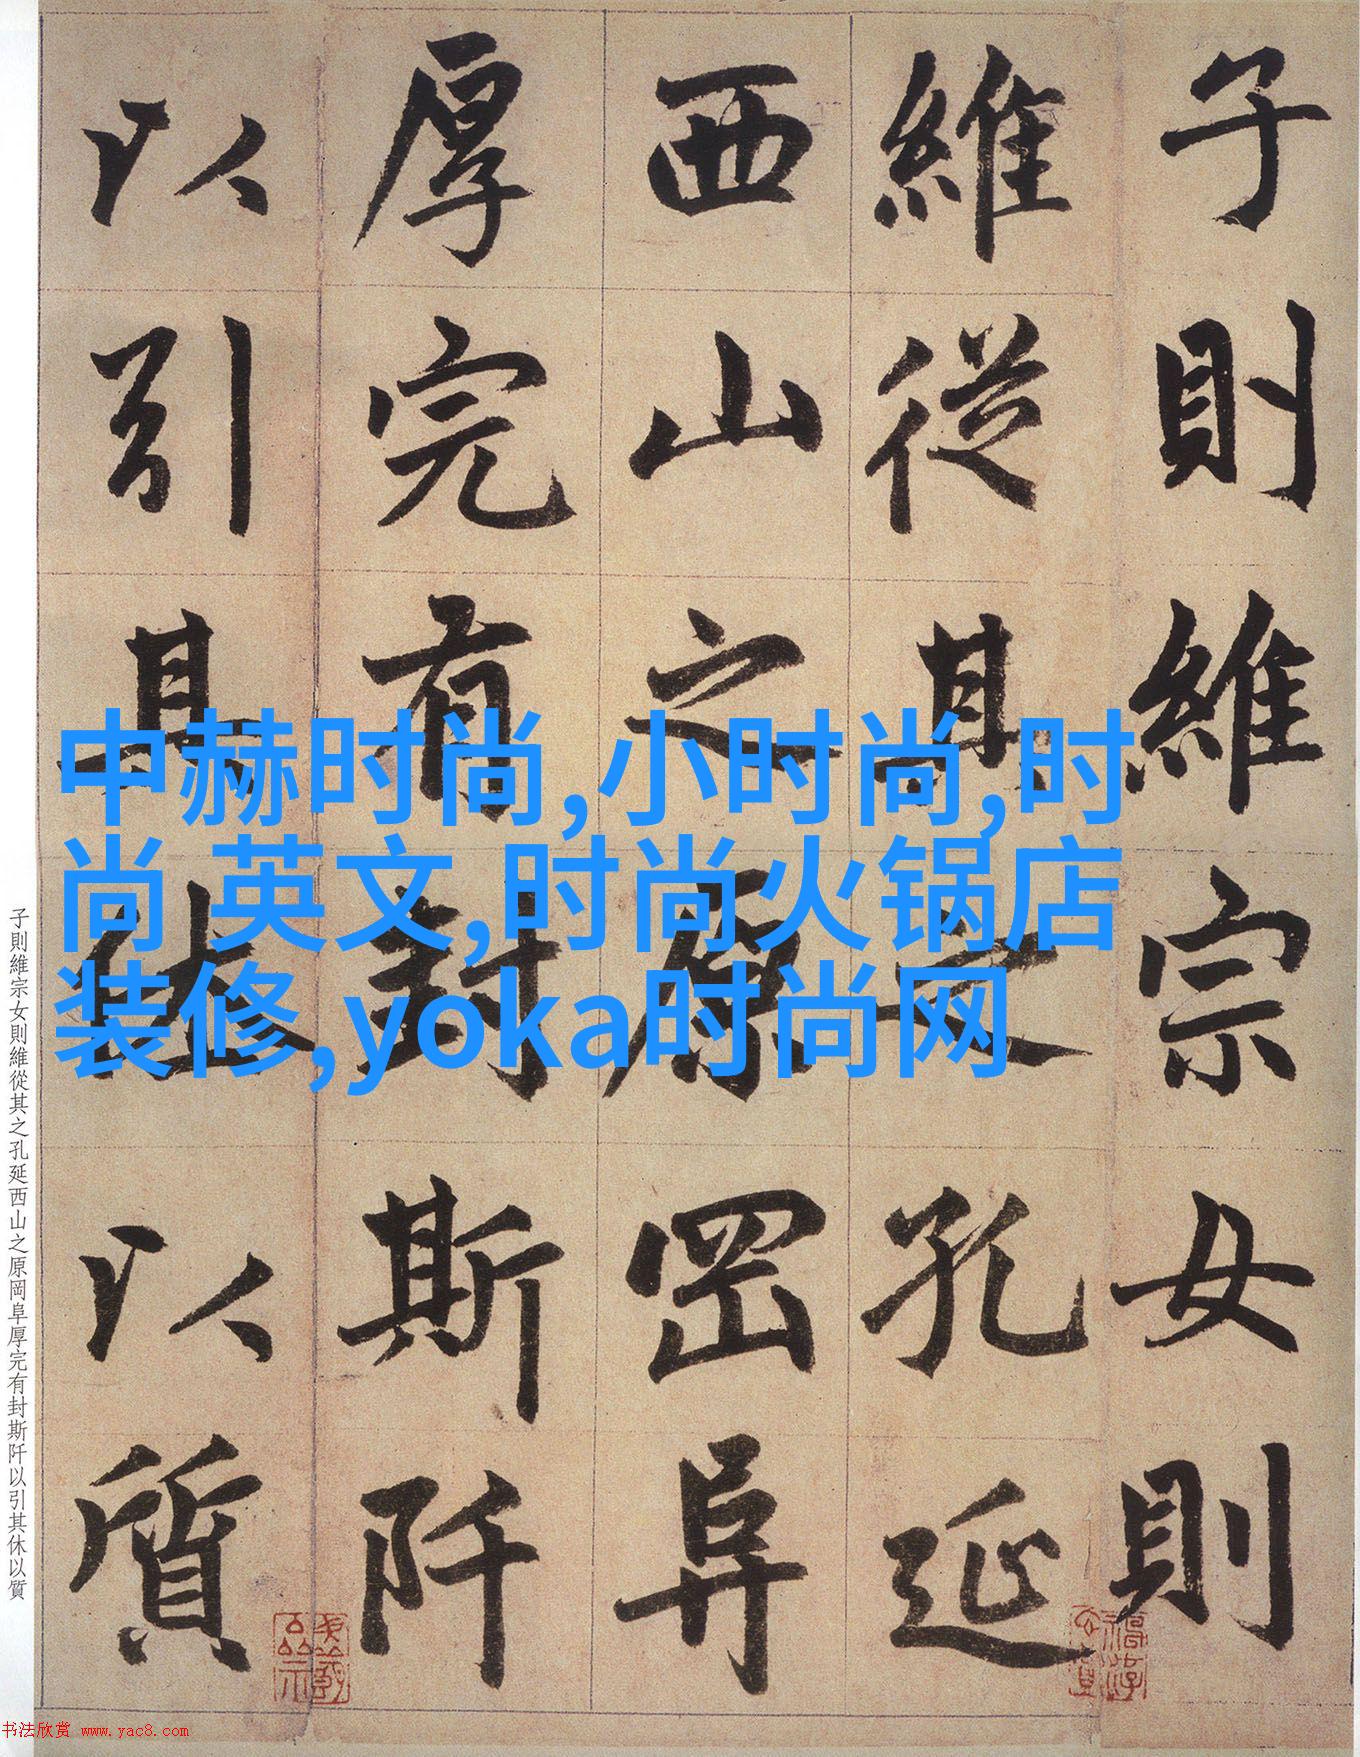 子則維宗女則
維從其之孔延
西山之原岡阜
厚完有封斯阡
以引其休以質
中赫时尚,小时尚,时
尚 英文,时尚火锅店
装修,yoka时尚网
子則維宗女則維從其之孔延西山之原岡阜厚完有封斯阡以引其休以質
书法欣赏 www.yac8.com